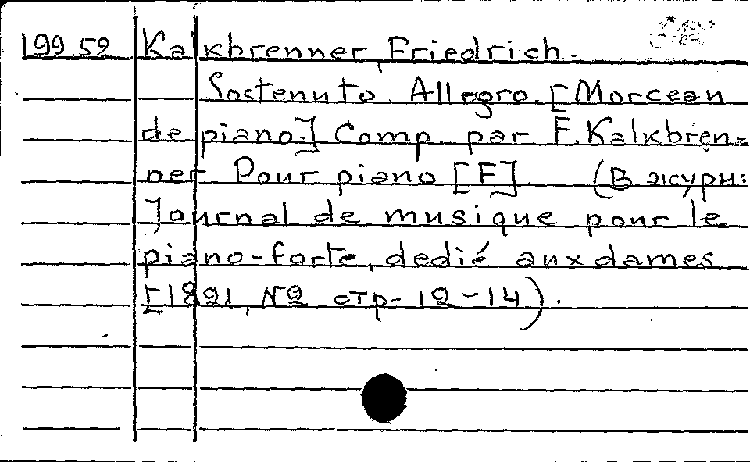 199 52 Kalkbrenner, Friedrich.
Sostenuto. Allegro. [Morceau
de piano.] Comp. par F. Kalkbren-
ner Pour piano [F] (В журн:
Journal de musique pour le
piano-forte, dedié aux dames
[1821, №2 стр- 12-14).